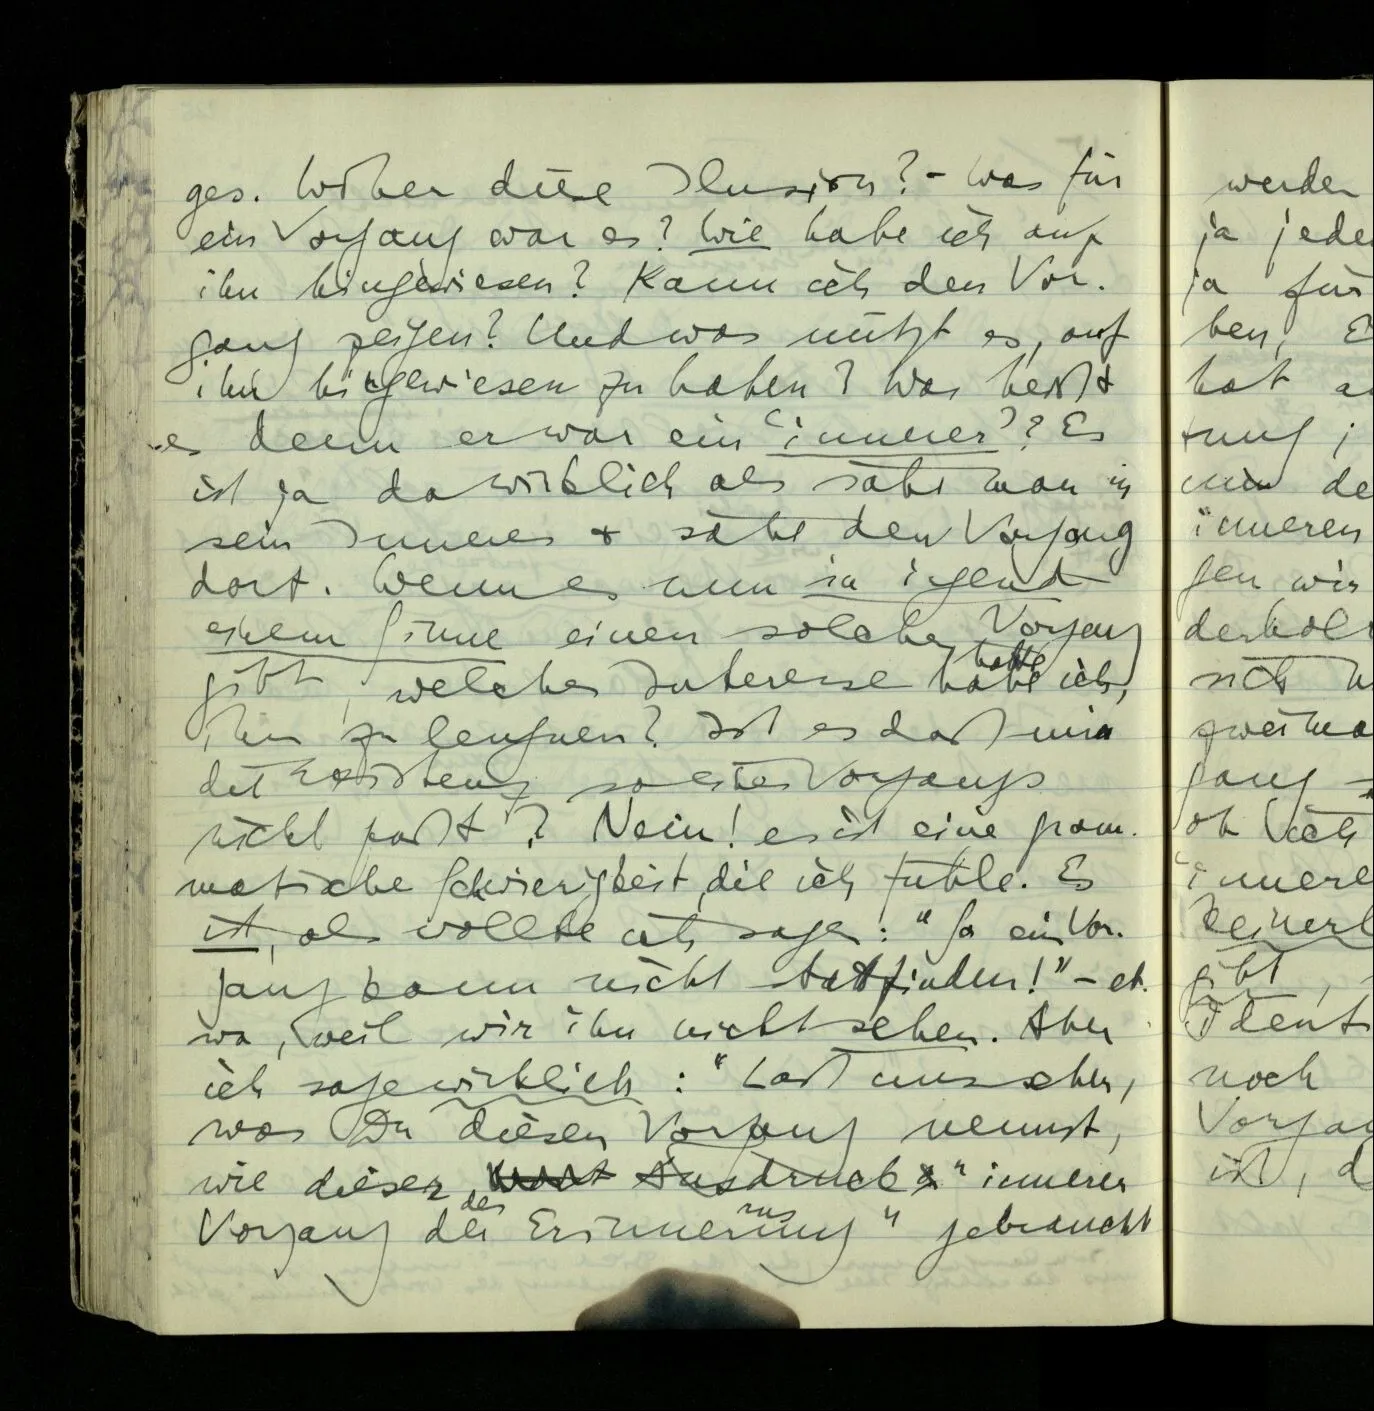 ges. Woher diese Illusion? – Was für
ein Vorgang war es? Wie habe ich auf
ihn hingewiesen? Kann ich den Vor-
gang zeigen? Und was nützt es, auf
ihn hingewiesen zu haben? Was heißt
es denn er war ein ‘innerer’? Es
ist ja da wirklich als sähe man in
sein Inneres & sähe den Vorgang
dort. Wenn es nun in irgend
einem Sinne einen solchen Vorgang
gibt, welches Interesse habe hätte ich,
ihn zu leugnen? Ist es daß mir
die Existenz solches Vorgangs
nicht paßt? Nein! es ist eine gram-
matische Schwierigkeit, die ich fühle. Es
ist, als wollte ich sagen: “So ein Vor-
gang kann nicht stattfinden!” – et-
wa, weil wir ihn nicht sehen. Aber
ich sage wirklich: “Laßt uns sehen,
was Du diesen Vorgang nennst,
wie dieser Wort Ausdruck “innerer
Vorgang der des Erinnerung ns” gebraucht
werden
ja jede
ja für
ben, E
hat a
tung;
de
inneren
gen wir
derhol
sich
zweima
gang –
ob ich
innere
keinerl
gibt,
Ident
noch
Vorga
ist, d